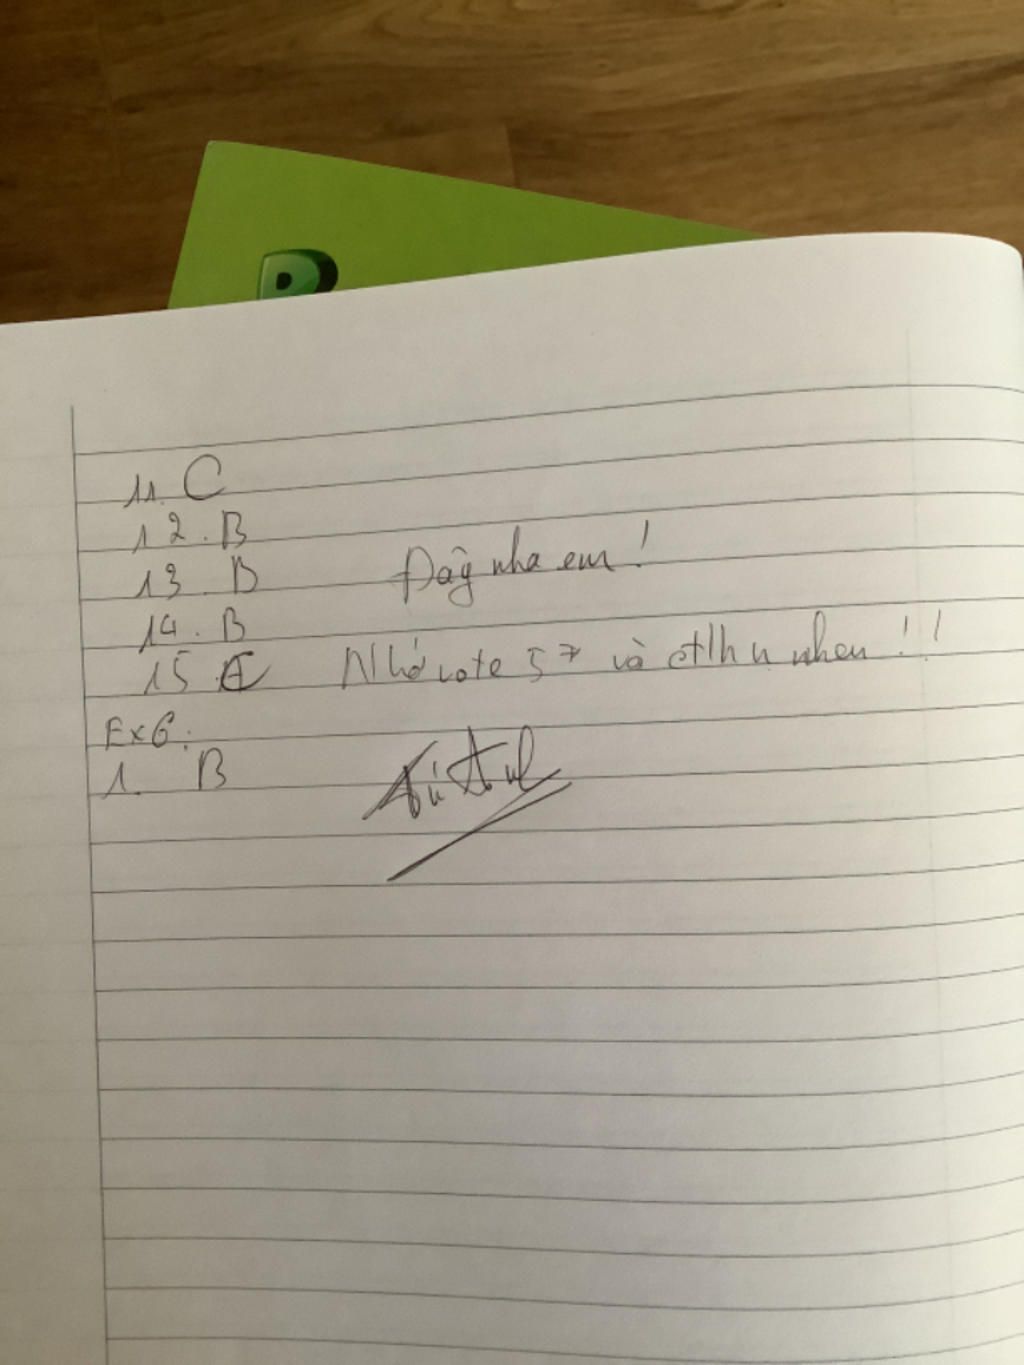 11. C
12. B
13. B
14. B
15. C
Đây nha em!
Nhớ vote 5 * và ctlhn nhen!!
Ex6:
1. B
Tú Anh